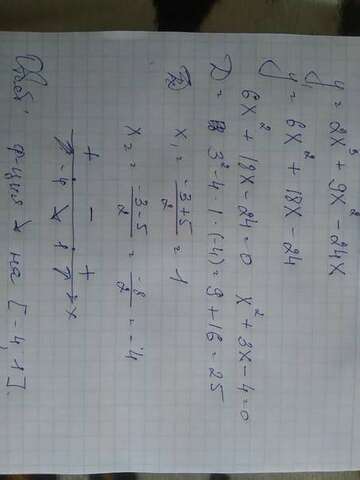 y = 2x³ + 9x² - 24x
y' = 6x² + 18x - 24
6x² + 18x - 24 = 0 x² + 3x - 4 = 0
D = 3² - 4 · 1 · (-4) = 9 + 16 = 25
x₁ = -3+5/2 = 1
x₂ = -3-5/2 = -8/2 = -4
+ - +
↗ -4 ↘ 1 ↗ x
Ответ: ф-ция ↘ на [-4; 1].